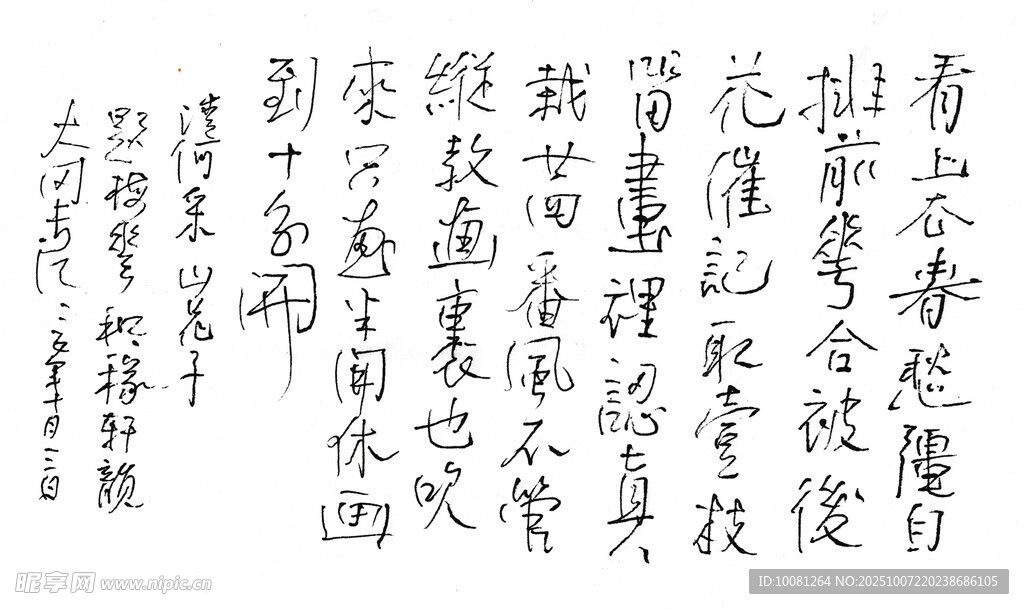 看上衣春愁彊自
排前華合被後
花催記取壹枝
留畫裡認真
栽廿四番風不管
縱教畫裏也吹
來只畫半開休画
到十分開
清何采山花子
題梅華和稼軒韻
大冈
年十月
昵享网 www.nipic.cn
ID:10081264 NO:20251007220238686105